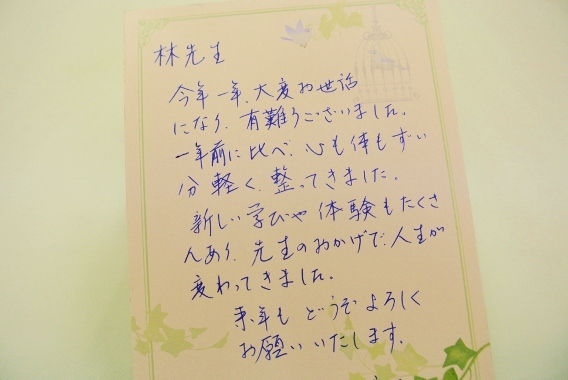 林先生
今年一年、大変お世話
になり、有難うございました。
一年前に比べ、心も体もずい
分軽く、整ってきました。
新しい学びや体験もたくさ
んあり、先生のおかげで、人生が
変わってきました。
来年も どうぞよろしく
お願いいたします。